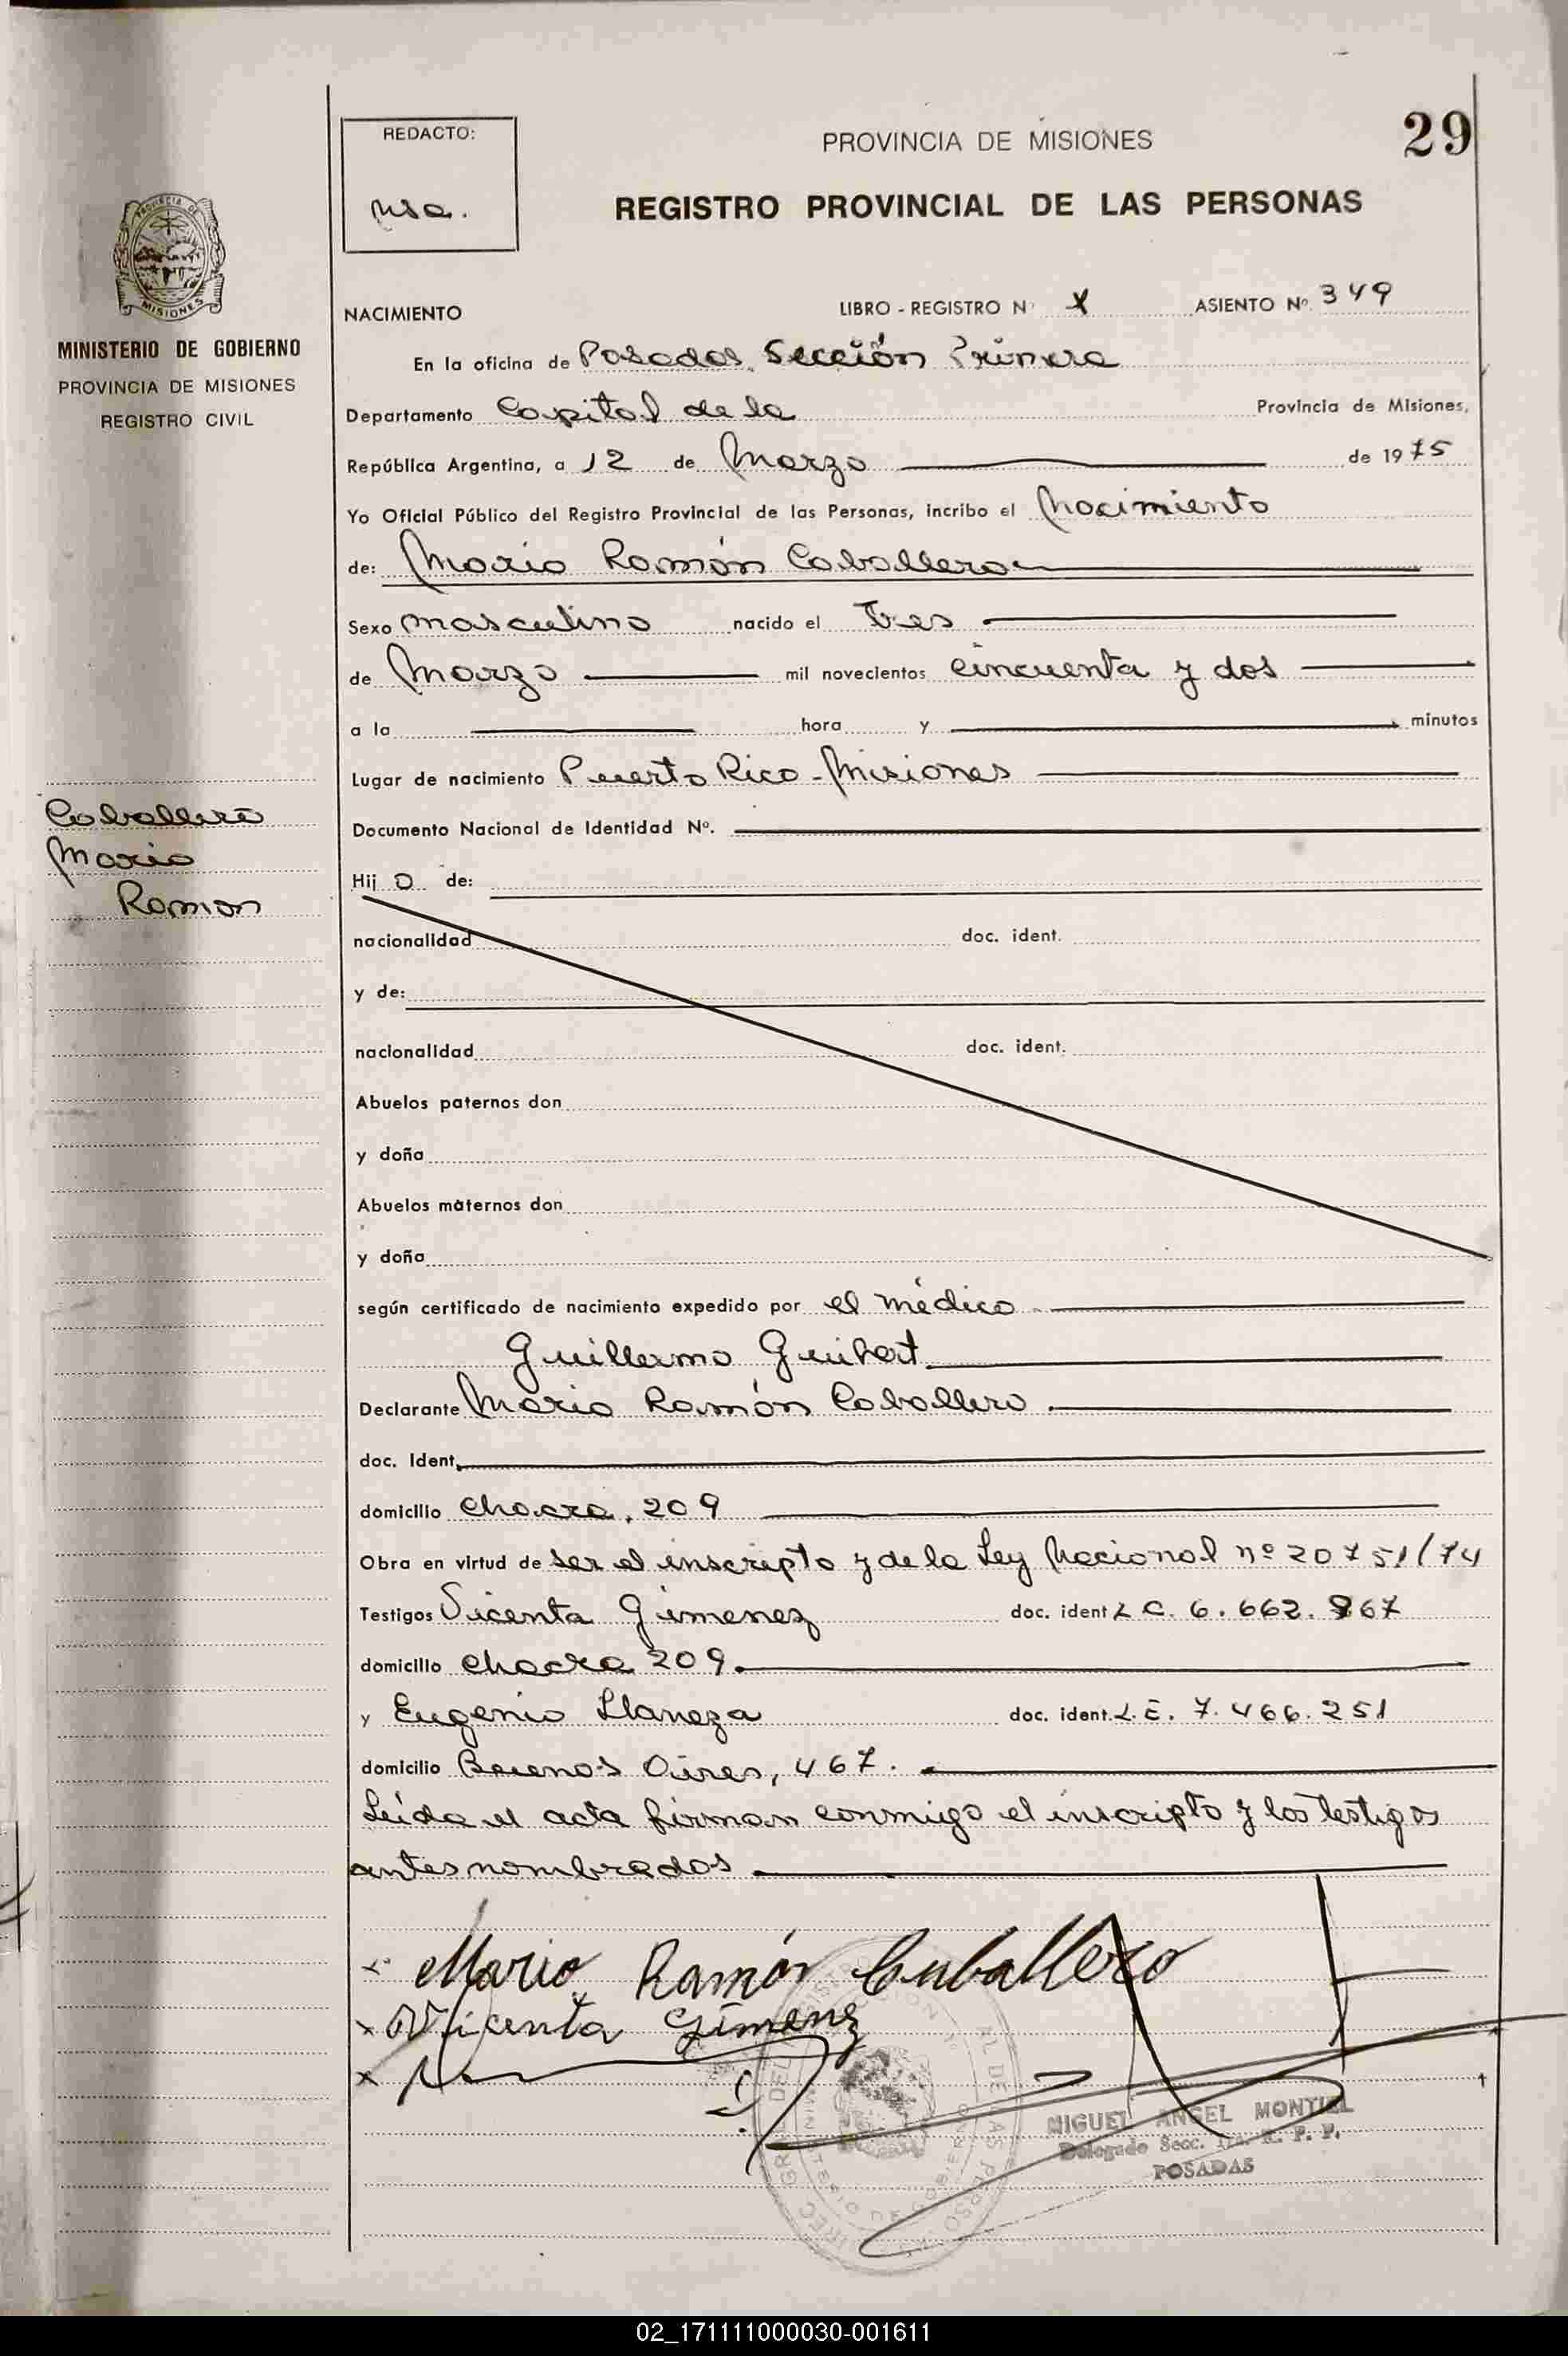 29
REDACTO:
PROVINCIA DE MISIONES
REGISTRO PROVINCIAL DE LAS PERSONAS
PROVINCIA DE
MISIONES
MINISTERIO DE GOBIERNO
PROVINCIA DE MISIONES
REGISTRO CIVIL
NACIMIENTO LIBRO - REGISTRO Nº X ASIENTO Nº 349
En la oficina de Posadas, Sección Primera
Departamento Capital de la Provincia de Misiones,
República Argentina, a 12 de Marzo de 1975
Yo Oficial Público del Registro Provincial de las Personas, incribo el Nacimiento
de: Mario Ramón Caballero
Sexo masculino nacido el Tres
de Marzo mil novecientos cincuenta y dos
a la hora y minutos
Lugar de nacimiento Puerto Rico - Misiones
Caballero
Mario
Ramon
Documento Nacional de Identidad Nº.
Hij o de:
nacionalidad doc. ident.
y de:
nacionalidad doc. ident.
Abuelos paternos don
y doña
Abuelos maternos don
y doña
según certificado de nacimiento expedido por el médico
Guillermo Guibert
Declarante Mario Ramón Caballero
doc. Ident.
domicilio chacra, 209
Obra en virtud de ser el inscripto y de la Ley Nacional nº 20751/74
Testigos Vicenta Gimenez doc. ident L C. 6.662.967
domicilio chacra 209.
y Eugenio Llaneza doc. ident. L.E. 7.466.251
domicilio Buenos Aires, 467.
Leída el acta firman conmigo el inscripto y los testigos
antes nombrados
Mario Ramón Caballero
x Vicenta Gimenz
x
MIGUEL ANGEL MONTIEL
Delegado Secc. 1ra. R. P. P.
POSADAS
02_171111000030-001611